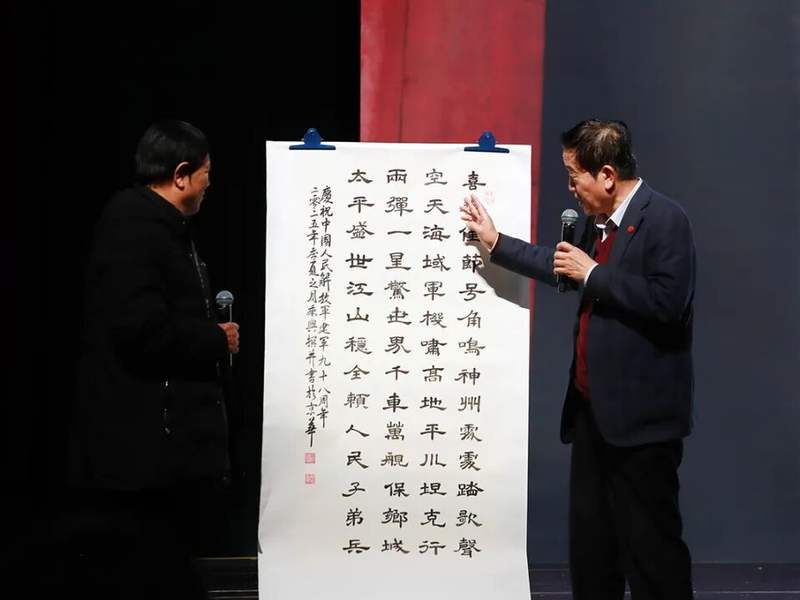 喜佳節号角鳴神州處處踏歌聲
空天海域軍機嘯高地平川坦克行
兩彈一星驚世界千車萬艦保鄉城
太平盛世江山穩全賴人民子弟兵
慶祝中國人民解放軍建軍九十八周年
二〇二五年季夏之月乘興撰并書於京華